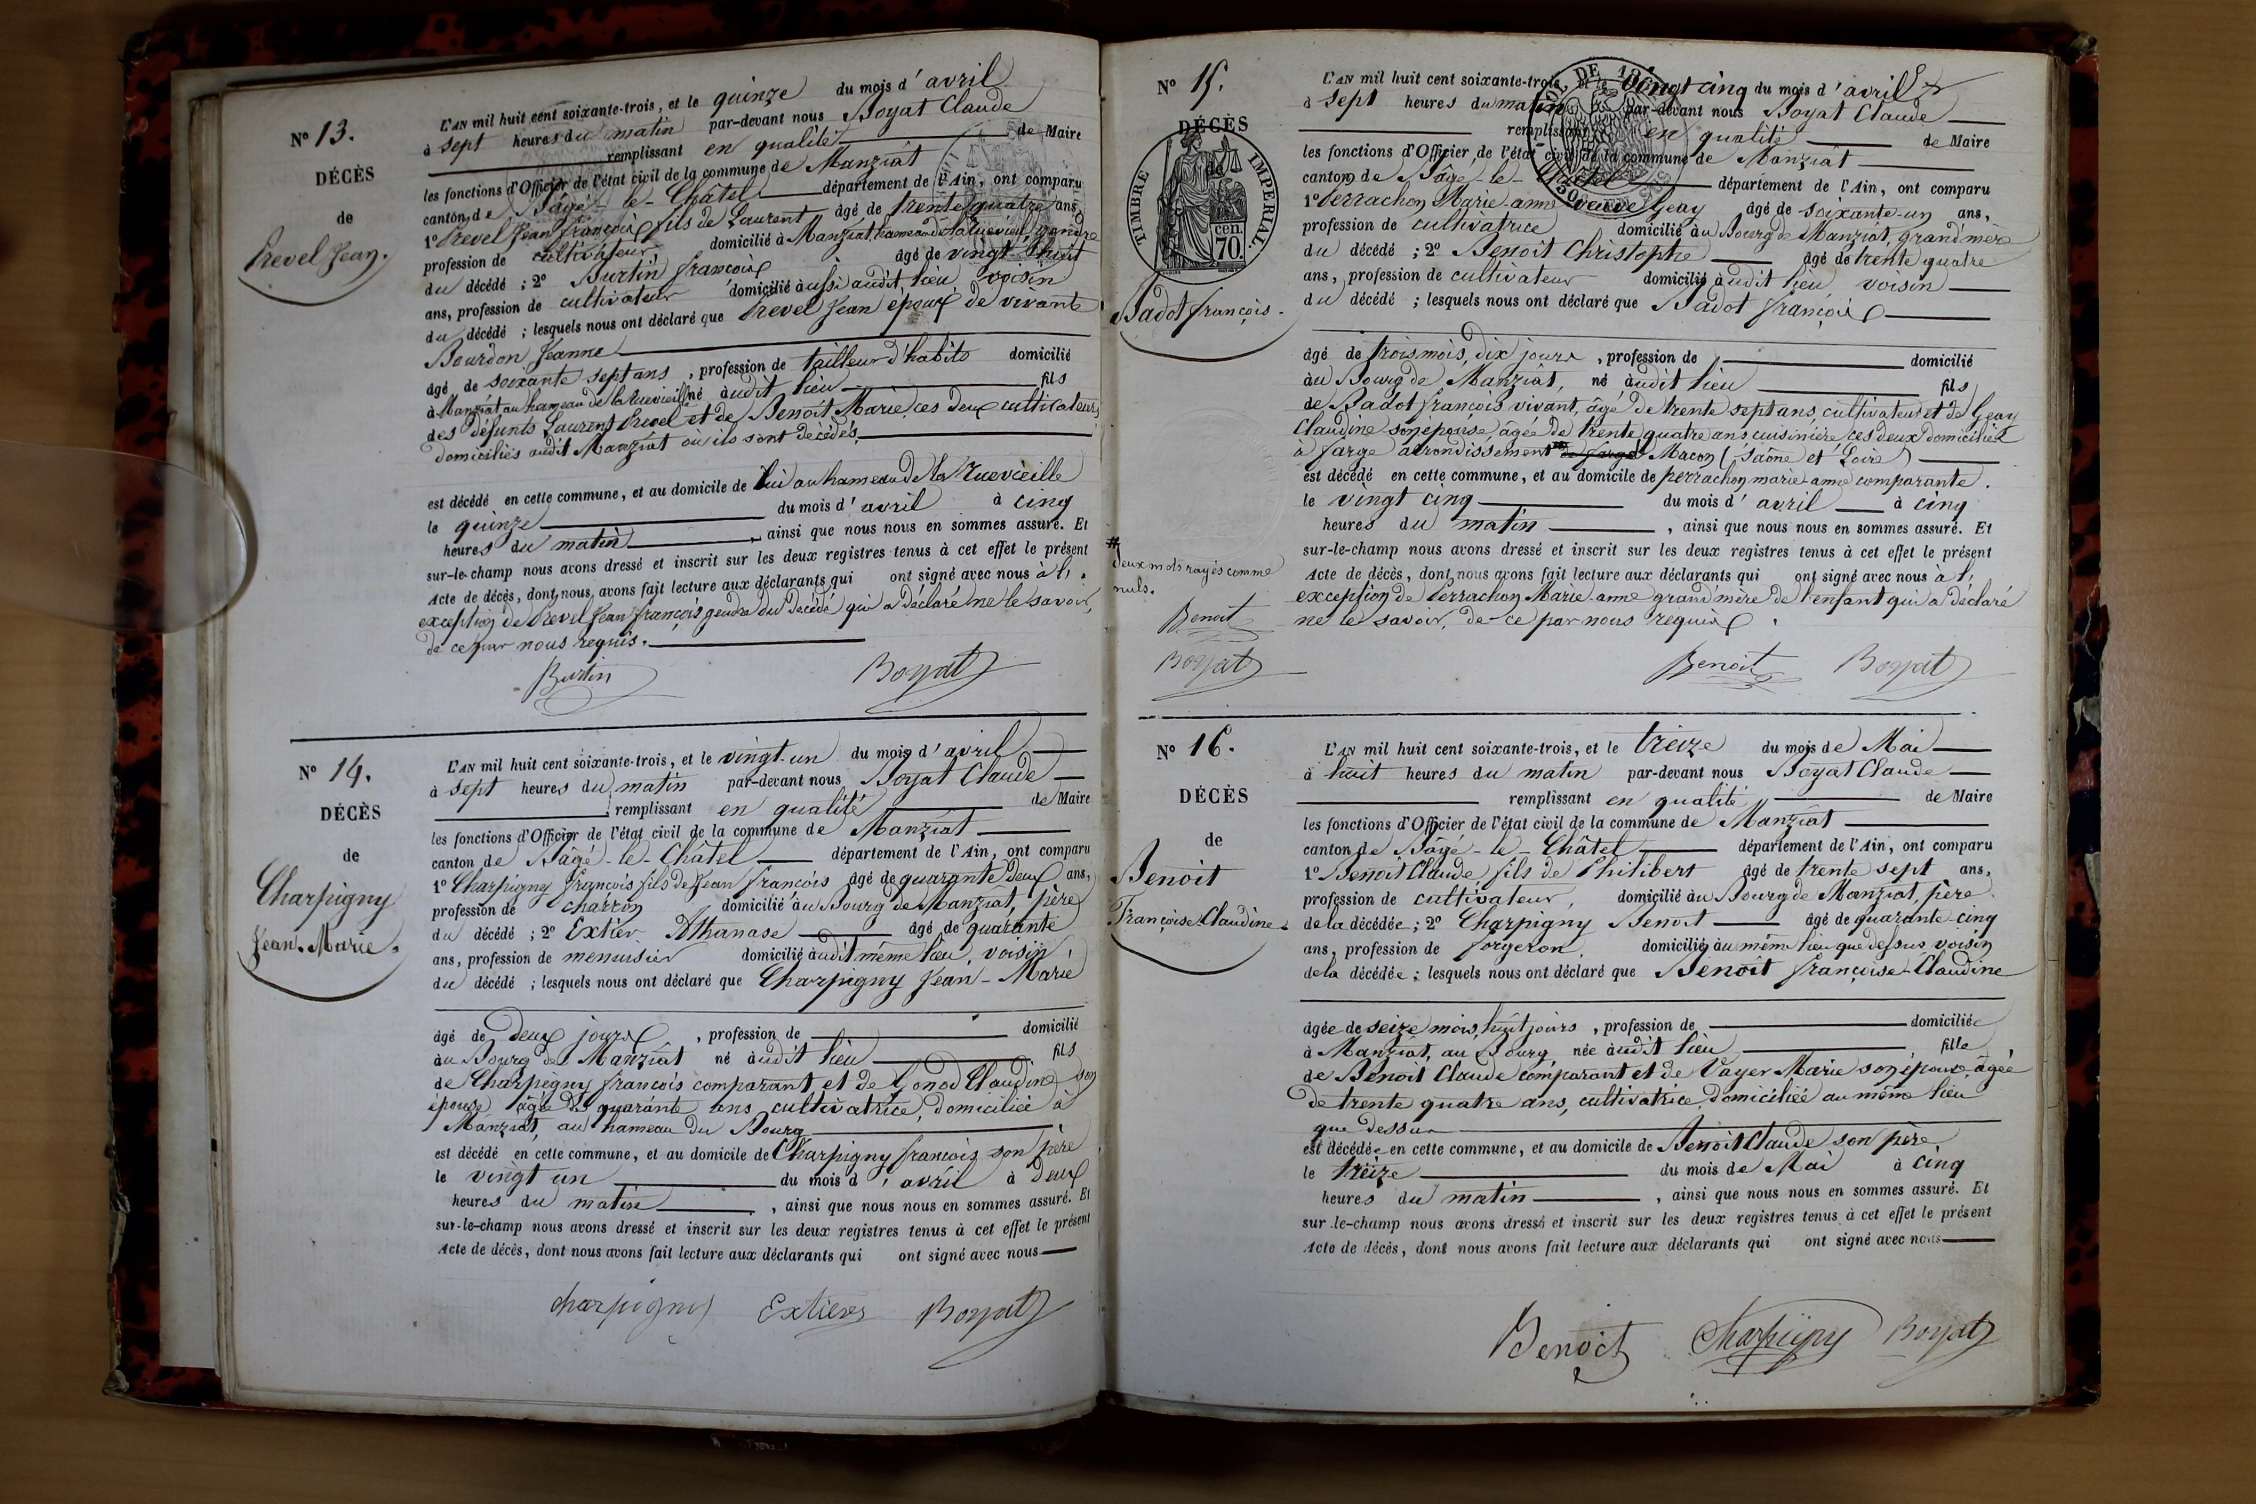 N° 13.
DÉCÈS
de
Prevel Jean.
L'AN mil huit cent soixante-trois, et le quinze du mois d'avril
à sept heures du matin par-devant nous Boyat Claude
remplissant en qualité de Maire
les fonctions d'Officier de l'état civil de la commune de Manziat
canton de Bâgé-le-Châtel département de l'Ain, ont comparu
1° Prevel Jean françois fils de Laurent âgé de trente quatre ans,
profession de cultivateur domicilié à Manziat, hameau de la ruevieille, gendre
du décédé ; 2° Burtin françois âgé de vingt huit
ans, profession de cultivateur domicilié aussi audit lieu, voisin
du décédé ; lesquels nous ont déclaré que Prevel Jean époux de vivante
Bourdon Jeanne
âgé de soixante sept ans, profession de tailleur d'habits domicilié
à Manziat au hameau de la ruevieille né audit lieu fils
des défunts Laurent Prevel et de Benoit Marie, ces deux cultivateurs,
domiciliés audit Manziat où ils sont décédés,
est décédé en cette commune, et au domicile de lui au hameau de la Ruevieille
le quinze du mois d'avril à cinq
heures du matin, ainsi que nous nous en sommes assuré. Et
sur-le-champ nous avons dressé et inscrit sur les deux registres tenus à cet effet le présent
Acte de décès, dont nous avons fait lecture aux déclarants qui ont signé avec nous à l'
exception de Prevel Jean françois gendre du décédé qui a déclaré ne le savoir,
de ce par nous requis.
Burtin Boyat
N° 14.
DÉCÈS
de
Charpigny
Jean-Marie.
L'AN mil huit cent soixante-trois, et le vingt-un du mois d'avril
à sept heures du matin par-devant nous Boyat Claude
remplissant en qualité de Maire
les fonctions d'Officier de l'état civil de la commune de Manziat
canton de Bâgé-le-Châtel département de l'Ain, ont comparu
1° Charpigny françois fils de Jean françois âgé de quarante deux ans,
profession de charron domicilié au Bourg de Manziat, père
du décédé ; 2° Extier Athanase âgé de quarante
ans, profession de menuisier domicilié audit même lieu, voisin
du décédé ; lesquels nous ont déclaré que Charpigny Jean-Marie
âgé de deux jours, profession de domicilié
au Bourg de Manziat né audit lieu fils
de Charpigny françois comparant et de Gonod Claudine son
épouse âgée de quarante ans cultivatrice, domiciliée à
Manziat, au hameau du Bourg
est décédé en cette commune, et au domicile de Charpigny françois son père
le vingt un du mois d'avril à deux
heures du matin, ainsi que nous nous en sommes assuré. Et
sur-le-champ nous avons dressé et inscrit sur les deux registres tenus à cet effet le présent
Acte de décès, dont nous avons fait lecture aux déclarants qui ont signé avec nous
charpigny Extier Boyat
N° 15.
DÉCÈS
de
TIMBRE IMPERIAL.
70 cen.
Badot françois.
L'AN mil huit cent soixante-trois, et le vingt cinq du mois d'avril
à sept heures du matin par-devant nous Boyat Claude
remplissant en qualité de Maire
les fonctions d'Officier de l'état civil de la commune de Manziat
canton de Bâgé-le-Châtel département de l'Ain, ont comparu
1° Perrachon Marie-anne veuve Geay âgé de soixante-un ans,
profession de cultivatrice domicilié au Bourg de Manziat, grand'mère
du décédé ; 2° Benoit Christophe âgé de trente quatre
ans, profession de cultivateur domicilié audit lieu voisin
du décédé ; lesquels nous ont déclaré que Badot françois
âgé de trois mois, dix jours, profession de domicilié
au Bourg de Manziat, né audit lieu fils
de Badot françois vivant, âgé de trente sept ans, cultivateur et de Geay
Claudine son épouse, âgée de trente quatre ans cuisinière, ces deux domiciliés
à farge arrondissement de farge Macon (Saône et Loire)
est décédé en cette commune, et au domicile de perrachon marie-anne comparante.
le vingt cinq du mois d'avril à cinq
heures du matin, ainsi que nous nous en sommes assuré. Et
sur-le-champ nous avons dressé et inscrit sur les deux registres tenus à cet effet le présent
Acte de décès, dont nous avons fait lecture aux déclarants qui ont signé avec nous à l'
exception de Perrachon Marie-anne grand'mère de l'enfant qui a déclaré
ne le savoir, de ce par nous requis.
# deux mots rayés comme
nuls.
Benoit
Boyat
Benoit Boyat
N° 16.
DÉCÈS
de
Benoit
Françoise-Claudine.
L'AN mil huit cent soixante-trois, et le treize du mois de Mai
à huit heures du matin par-devant nous Boyat Claude
remplissant en qualité de Maire
les fonctions d'Officier de l'état civil de la commune de Manziat
canton de Bâgé-le-Châtel département de l'Ain, ont comparu
1° Benoit Claude fils de Philibert âgé de trente sept ans,
profession de cultivateur, domicilié au Bourg de Manziat, père
de la décédée ; 2° Charpigny Benoit âgé de quarante-cinq
ans, profession de forgeron, domicilié au même lieu que dessus voisin
de la décédée ; lesquels nous ont déclaré que Benoit françoise-Claudine
âgée de seize mois, huit jours, profession de domiciliée
à Manziat, au Bourg, née audit lieu fille
de Benoit Claude comparant et de Vayer Marie son épouse, âgée
de trente quatre ans, cultivatrice, domiciliée au même lieu
que dessus
est décédée en cette commune, et au domicile de Benoit Claude son père
le treize du mois de Mai à cinq
heures du matin, ainsi que nous nous en sommes assuré. Et
sur-le-champ nous avons dressé et inscrit sur les deux registres tenus à cet effet le présent
Acte de décès, dont nous avons fait lecture aux déclarants qui ont signé avec nous
Benoit Charpigny Boyat